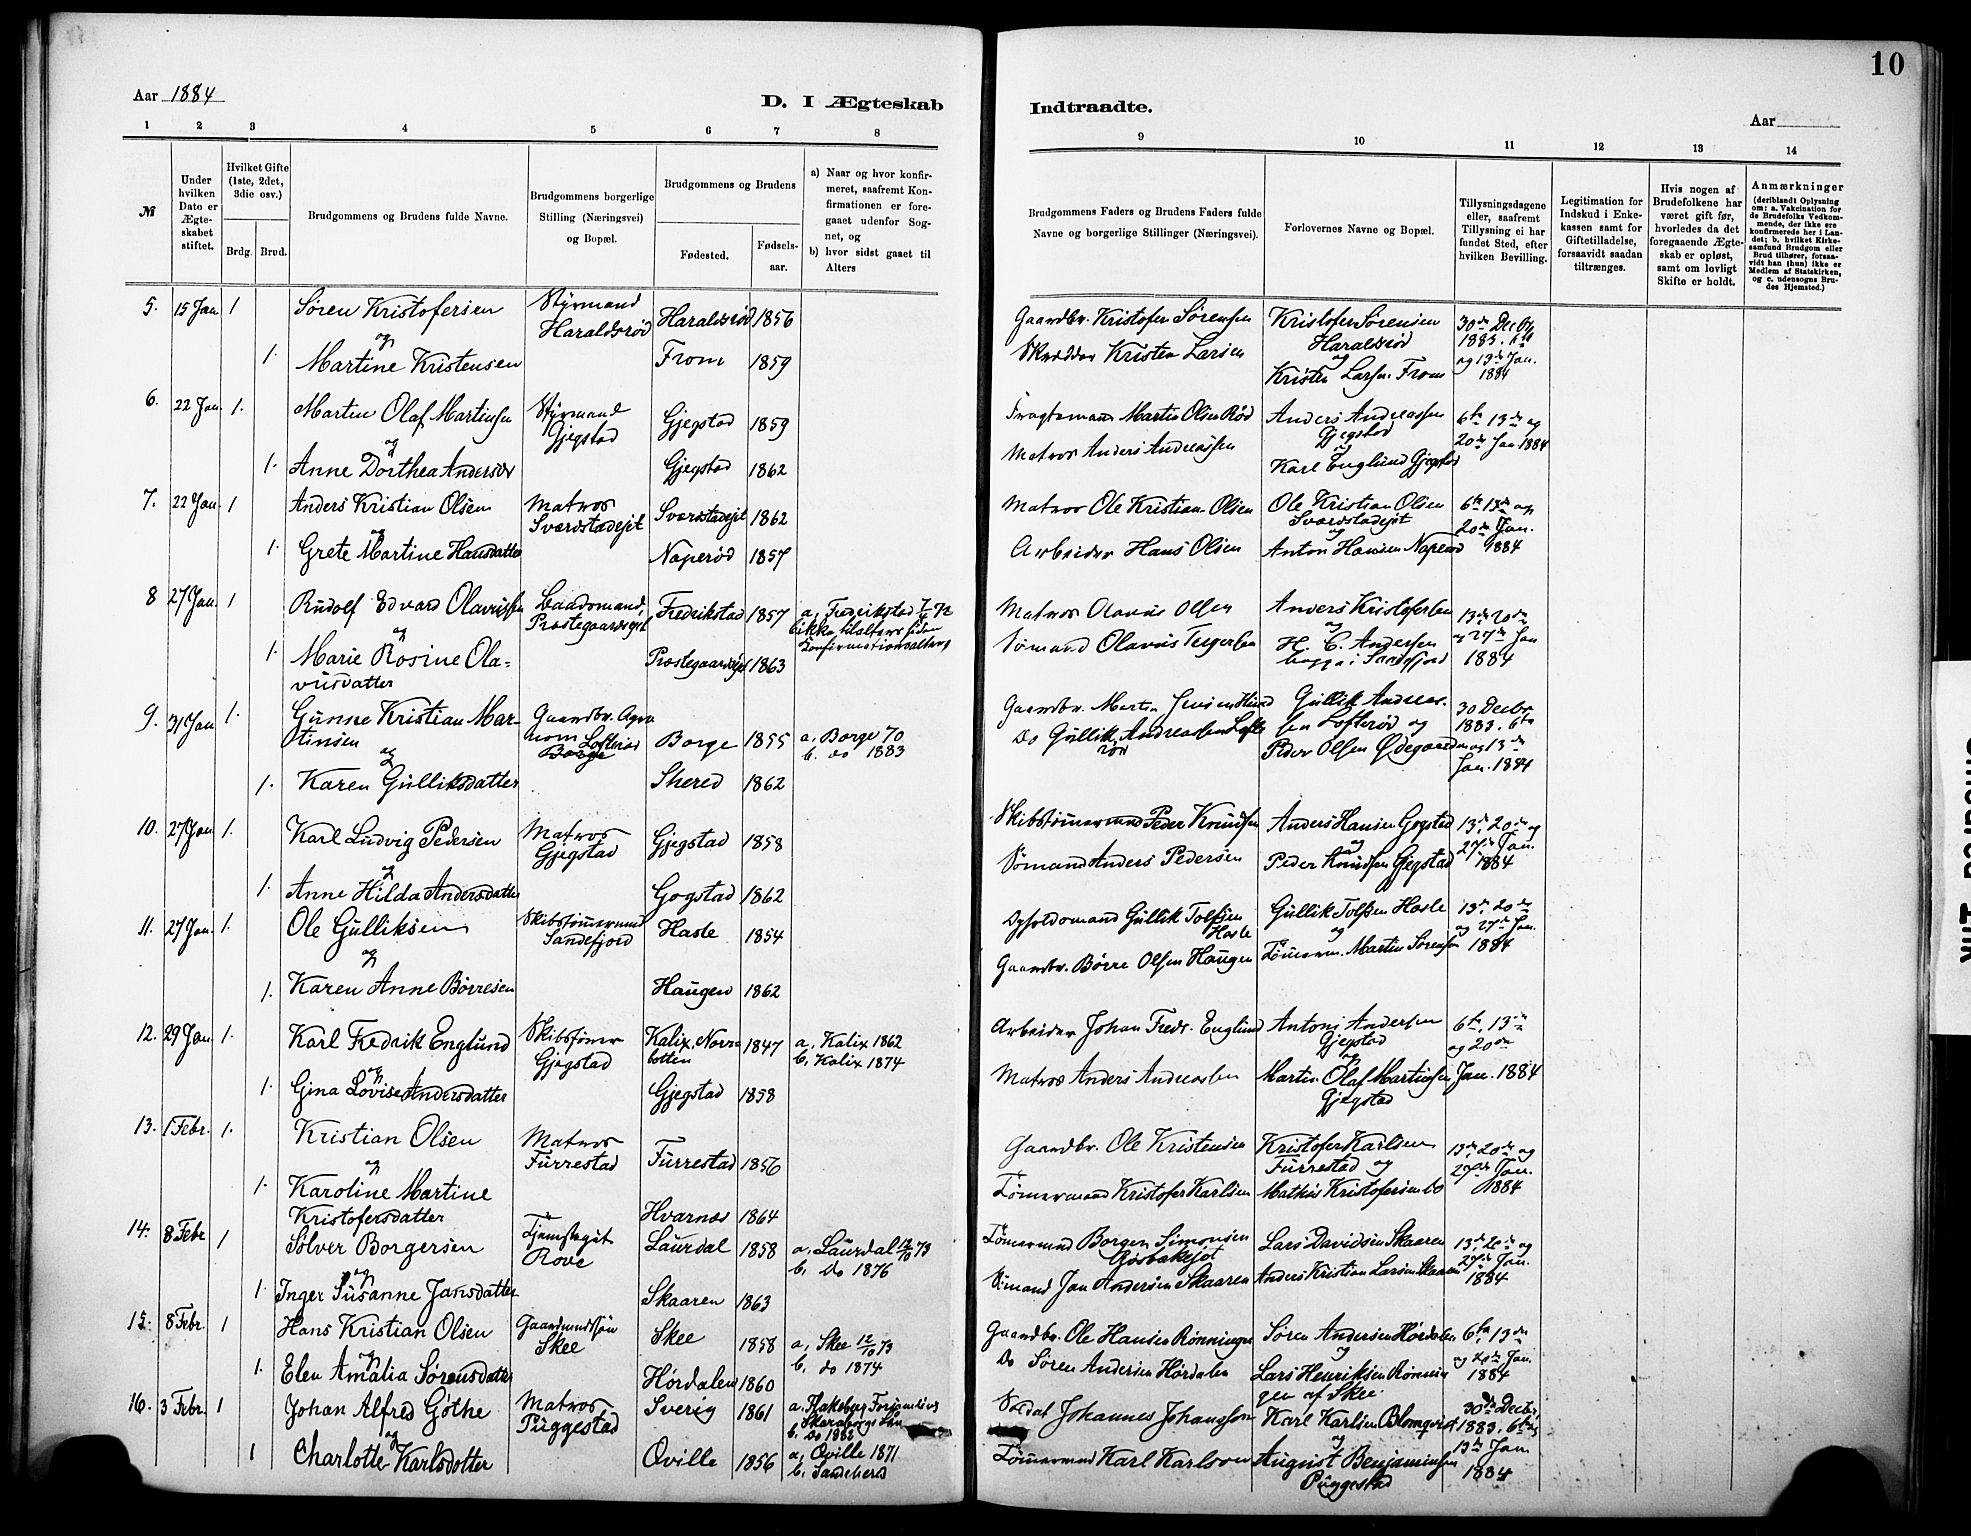 10
Aar 1884
D. I Ægteskab
Indtraadte.
Aar
1 2 3 4 5 6 7 8
9 10 11 12 13 14
№
Under hvilken Dato er Ægteskabet stiftet.
Hvilket Gifte (1ste, 2det, 3die osv.)
Brdg. Brud.
Brudgommens og Brudens fulde Navne.
Brudgommens borgerlige Stilling (Næringsvei) og Bopæl.
Brudgommens og Brudens
Fødested.
Fødsels-aar.
a) Naar og hvor konfirmeret, saafremt Konfirmationen er foregaaet udenfor Sognet, og
b) hvor sidst gaaet til Alters
Brudgommens Faders og Brudens Faders fulde Navne og borgerlige Stillinger (Næringsvei).
Forlovernes Navne og Bopæl.
Tillysningsdagene eller, saafremt Tillysning ei har fundet Sted, efter hvilken Bevilling.
Legitimation for Indskud i Enkekassen samt for Giftetilladelse, forsaavidt saadan tiltrænges.
Hvis nogen af Brudefolkene har været gift før, hvorledes da det foregaaende Ægteskab er opløst, samt om lovligt Skifte er holdt.
Anmærkninger (deriblandt Oplysning om: a. Vakcination for de Brudefolks Vedkommende, der ikke ere konfirmerede her i Landet; b. hvilket Kirkesamfund Brudgom eller Brud tilhører, forsaavidt han (hun) ikke er Medlem af Statskirken, og c. udensogns Brudes Hjemsted.)
5. 15 Jan 1 Søren Kristofersen Styrmand Haraldsrød Haraldsrød 1856
og
1. Martine Kristensen From 1859
Gaardbr. Kristofer Sørensen Kristofer Sørensen Haraldsrød 30de Decbr 1883. 6te
Skrædder Kristen Larsen og Kristen Larsen From og 13de Jan. 1884
6. 22 Jan. 1. Martin Olaf Martinsen Styrmand Gjegstad Gjegstad 1859
og
1. Anne Dorthea Andersdr Gjegstad 1862
Fragtemann Martin Olsen Rød Anders Andreassen Gjegstad 6te 13de og
Matros Anders Andreassen og Karl Englund Gjegstad 20de Jan 1884
7. 22 Jan 1 Anders Kristian Olsen Matros Sverdstadejet Sverdstadejet 1862
og
1. Grete Martine Hansdatter Naperød 1857
Matros Ole Kristian Olsen Ole Kristian Olsen Sverdstadejet 6te 13de og
Arbeider Hans Olsen og Anton Hansen Naperød 20de Jan. 1884
8 27 Jan. 1 Rudolf Edvard Olavussen Baadsmand, Prestegaardsejet Fredrikstad 1857 a, Fredrikstad 72
b ikke tilalters siden Konfirmationsalterg
og
1. Marie Rosine Olavusdatter Prestegaardsejet 1863
Matros Olavus Olsen Anders Kristofersen 13de 20de
Sømand Olavus Teigersen og H. C. Andersen begge i Sandefjord og 27de Jan 1884
9. 31 Jan 1. Gunne Kristian Martinsen Gaardbr. Agronom Lofterød Borge Borge 1855 a. Borge 70
b. do 1883
og
1. Karen Gulliksdatter Skered 1862
Gaardbr. Martin Jensen Hund Gullik Andreassen Lofterød og 30 Decbr 1883. 6te
Do Gullik Andreassen Lofterød Peder Olsen Ødegaarden og 13de Jan. 1884
10. 27 Jan 1. Karl Ludvig Pedersen Matros Gjegstad Gjegstad 1858
og
1. Anne Hilda Andersdatter Gogstad 1862
Skibstømmermand Peder Knudsen Anders Hansen Gogstad 13de 20de og
Sømand Anders Pedersen og Peder Knudsen Gjegstad 27de Jan. 1884
11. 27 Jan. 1. Ole Gulliksen Skibstømmermand Sandefjord Hasle 1854
og
1. Karen Anne Børresen Haugen 1862
Opholdsmand Gullik Tolfsen Hasle Gullik Tolfsen Hasle 13de 20de
Gaardbr. Børre Olsen Haugen og Tømmerm. Martin Sørensen og 27de Jan. 1884
12. 29 Jan. 1. Karl Fredrik Englund Skibstømmer Gjegstad Kalix, Norrabotten 1847 a, Kalix 1862
b. Kalix 1874
og
1. Gina Lovise Andersdatter Gjegstad 1858
Arbeider Johan Fredr. Englund Antoni Andersen Gjegstad 6te, 13de og 20de
Matros Anders Andreassen og Martin Olaf Martinsen Gjegstad Jan. 1884
13. 1 Febr. 1. Kristian Olsen Matros Furrestad Furrestad 1856
og
1. Karoline Martine Kristofersdatter Hvarnes 1864
Gaardbr. Ole Kristensen Kristofer Karlsen Furrestad og 13de 20de og
Tømmermand Kristofer Karlsen Mathis Kristofersen do 27de Jan. 1884
14. 8 Febr 1 Sølver Borgersen Rove Laurdal 1858 a. Laurdal 73
b. Do 1876
og
1. Inger Susanne Jansdatter Skaaren 1863
Tømmermand Borger Simonsen Lars Davidsen Skaaren 13de, 20de og
Sømand Jan Andersen Skaaren Anders Kristian Larsen Skaaren 27de Jan. 1884
15. 8 Febr. 1 Hans Kristian Olsen Gaardmandssøn Skee Skee 1858 a, Skee 12/10 73
b. do 1874
og
1. Elen Amalia Sørensdatter Hørdalen 1860
Gaardbr. Ole Hansen Rønningen Søren Andersen Hørdalen 6te, 13de
Do Søren Andersen Hørdalen Lars Henriksen Rønningen af Skee. og 20de Jan. 1884
16. 3 Febr. 1 Johan Alfred Gøthe Matros Puggestad Sverig 1861 a. Flakeberg Skaraborgs Län
b. Do 1882
og
1 Charlotte Karlsdotter Qville 1856 a, Qville 1871
b. Sandeherd
Soldat Johannes Johansson Karl Karlsen Blomqvist 30de Decbr, 1883. 6te og
Tømmermand Karl Karlson og August Benjaminsen Puggestad 13de Jan 1884